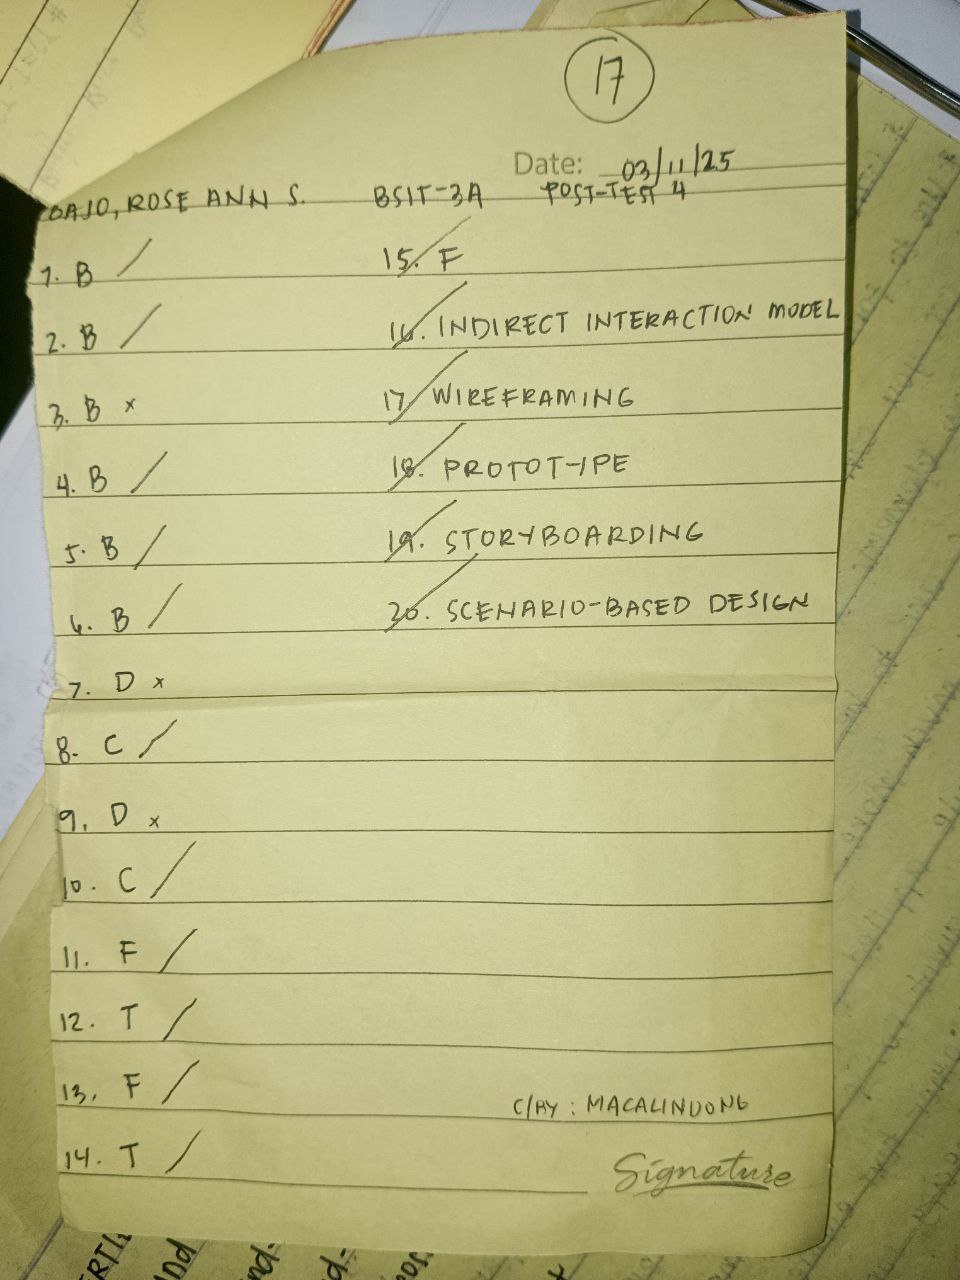 17
Date: 03/11/25
BAJO, ROSE ANN S. BSIT-3A POST-TEST 4
1. B /
2. B /
3. B x
4. B /
5. B /
6. B /
7. D x
8. C /
9. D x
10. C /
11. F /
12. T /
13. F /
14. T /
15. F
16. INDIRECT INTERACTION MODEL
17. WIREFRAMING
18. PROTOTYPE
19. STORYBOARDING
20. SCENARIO-BASED DESIGN
C/BY : MACALINDONG
Signature